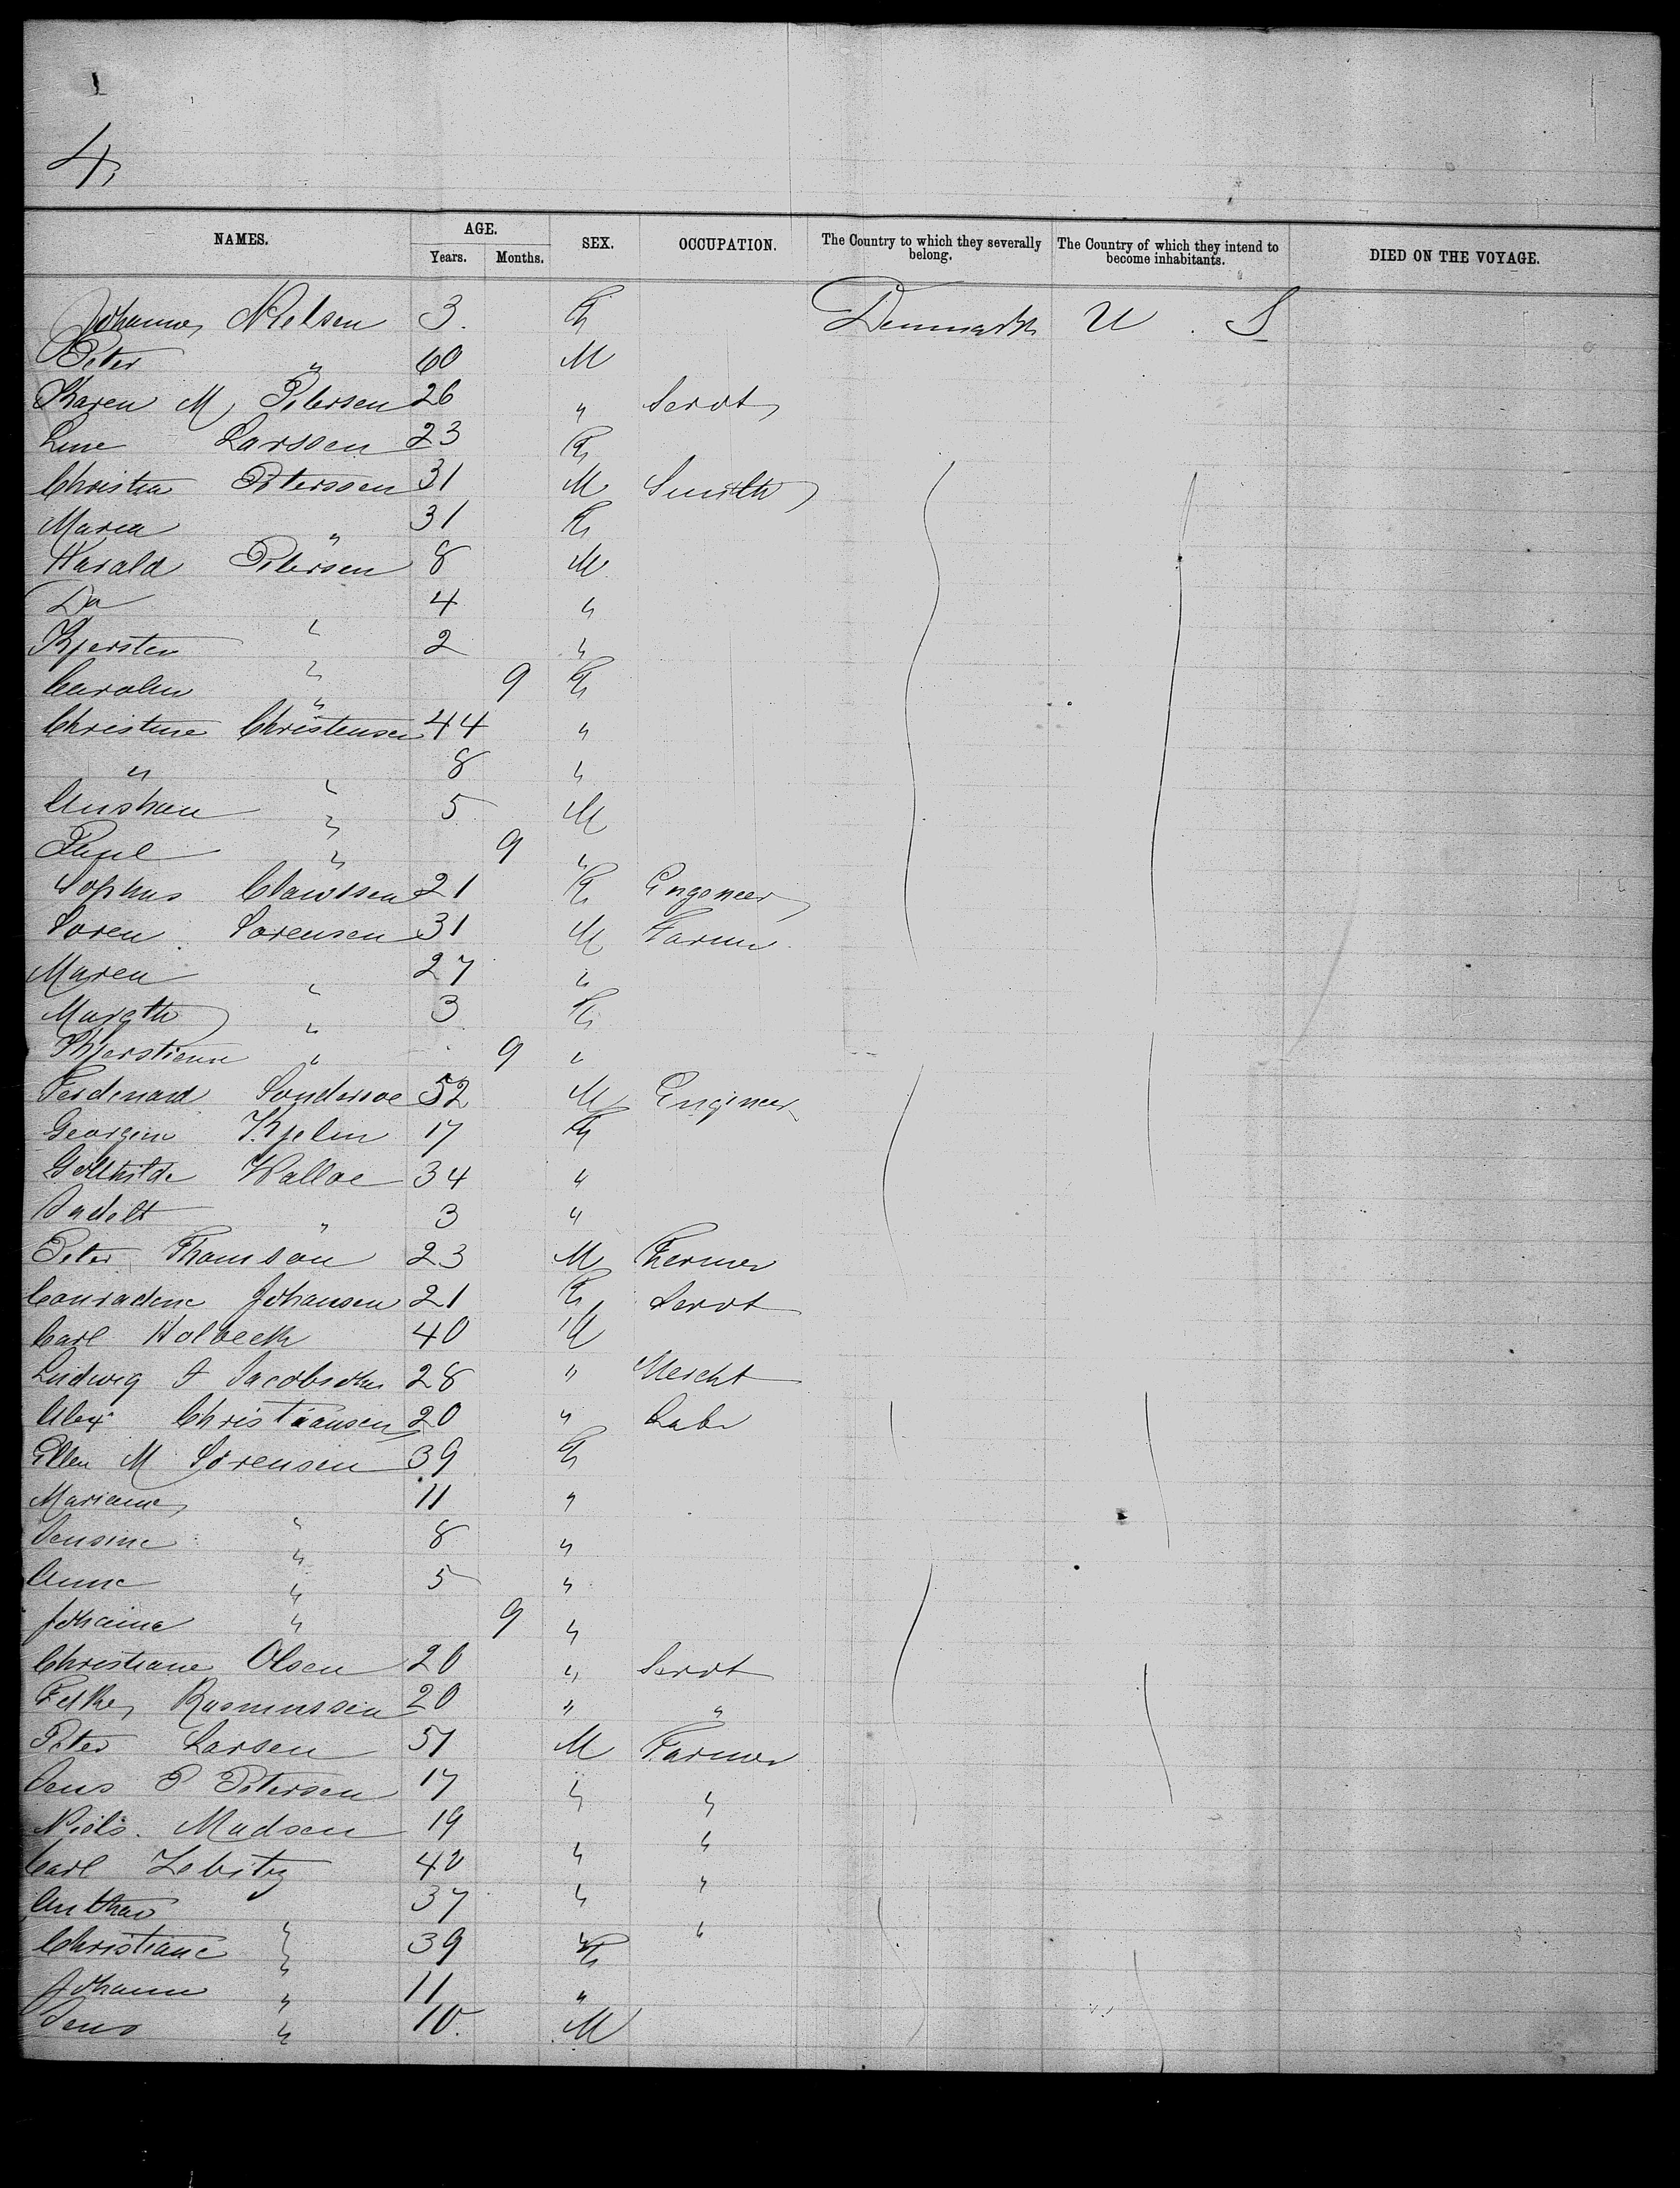 4,
NAMES. AGE. SEX. OCCUPATION. The Country to which they severally belong. The Country of which they intend to become inhabitants. DIED ON THE VOYAGE.
Years. Months.
Johannes Nielsen 3 F Denmark U. S
Peter " 60 M
Karen M Petersen 26 " Servt
Line Larssen 23 F
Christen Peterssen 31 M Smith
Maren " 31 F
Harald Petersen 8 M
Da " 4 "
Kjersten " 2 "
Carolin " 9 F
Christine Christensen 44 "
" " 8 "
" 5 M
Paul " 9 "
Sophus Clawssen 21 F Engeneer
Soren Sorensen 31 M Farmer
Maren " 27 "
Margth " 3 F
Kjerstienn " 9 "
Ferdenard 52 M Engineer
Georgine Kjelin 17 F
Walloe 34 "
" 3 "
Peter Thomson 23 M Fermer
Conradine Johansen 21 F Servt
Carl Holbeck 40 M
Ludwig J Jacobsohn 28 " Mercht
Alex Christiansen 20 " Labr
Ellen M Sorensen 39 F
Mariane " 11 "
Jensine " 8 "
Anne " 5 "
Johanne " 9 "
Christiane Olsen 20 " Servt
Rasmussen 20 " "
Peter Larsen 51 M Farmer
Jens P Petersen 17 " "
Niels. Madsen 19 " "
Carl Lebitz 40 " "
Anthao " 37 " "
Christiane " 39 F
Johann " 11 "
Jens " 10. M